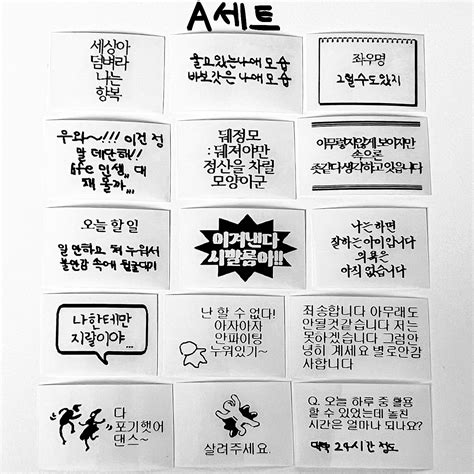 A세트
세상아
덤벼라
나는
항복
울고있는나에 모습
바보같은 나에 모습
좌우명
그럴수도있지
우와~!!! 이건 정
말 대단해!!
life 인생,, 대
패 올까...
뒈정모
: 뒈져야만
정산을 차릴
모양이군
아무렇지않게 보이지만
속으론
좃같다 생각하고 잇읍니다
오늘 할 일
일 안하고 쳐 누워서
불안감 속에 뒹굴대기
이겨낸다
시팔룡아!!
나는 하면
잘하는 아이입니다
의욕은
아직 없습니다
나한테만
지랄이야...
난 할 수 없다!
아자아자
안파이팅
누워있기~
죄송합니다 아무래도
안될것같습니다 저는
못하겠습니다 그럼안
녕히 계세요 별로안감
사합니다
다
포기햇어
댄스~
살려주세요.
Q. 오늘 하루 중 활용
할 수 있었는데 놓친
시간은 얼마나 되나요?
대략 24시간 정도